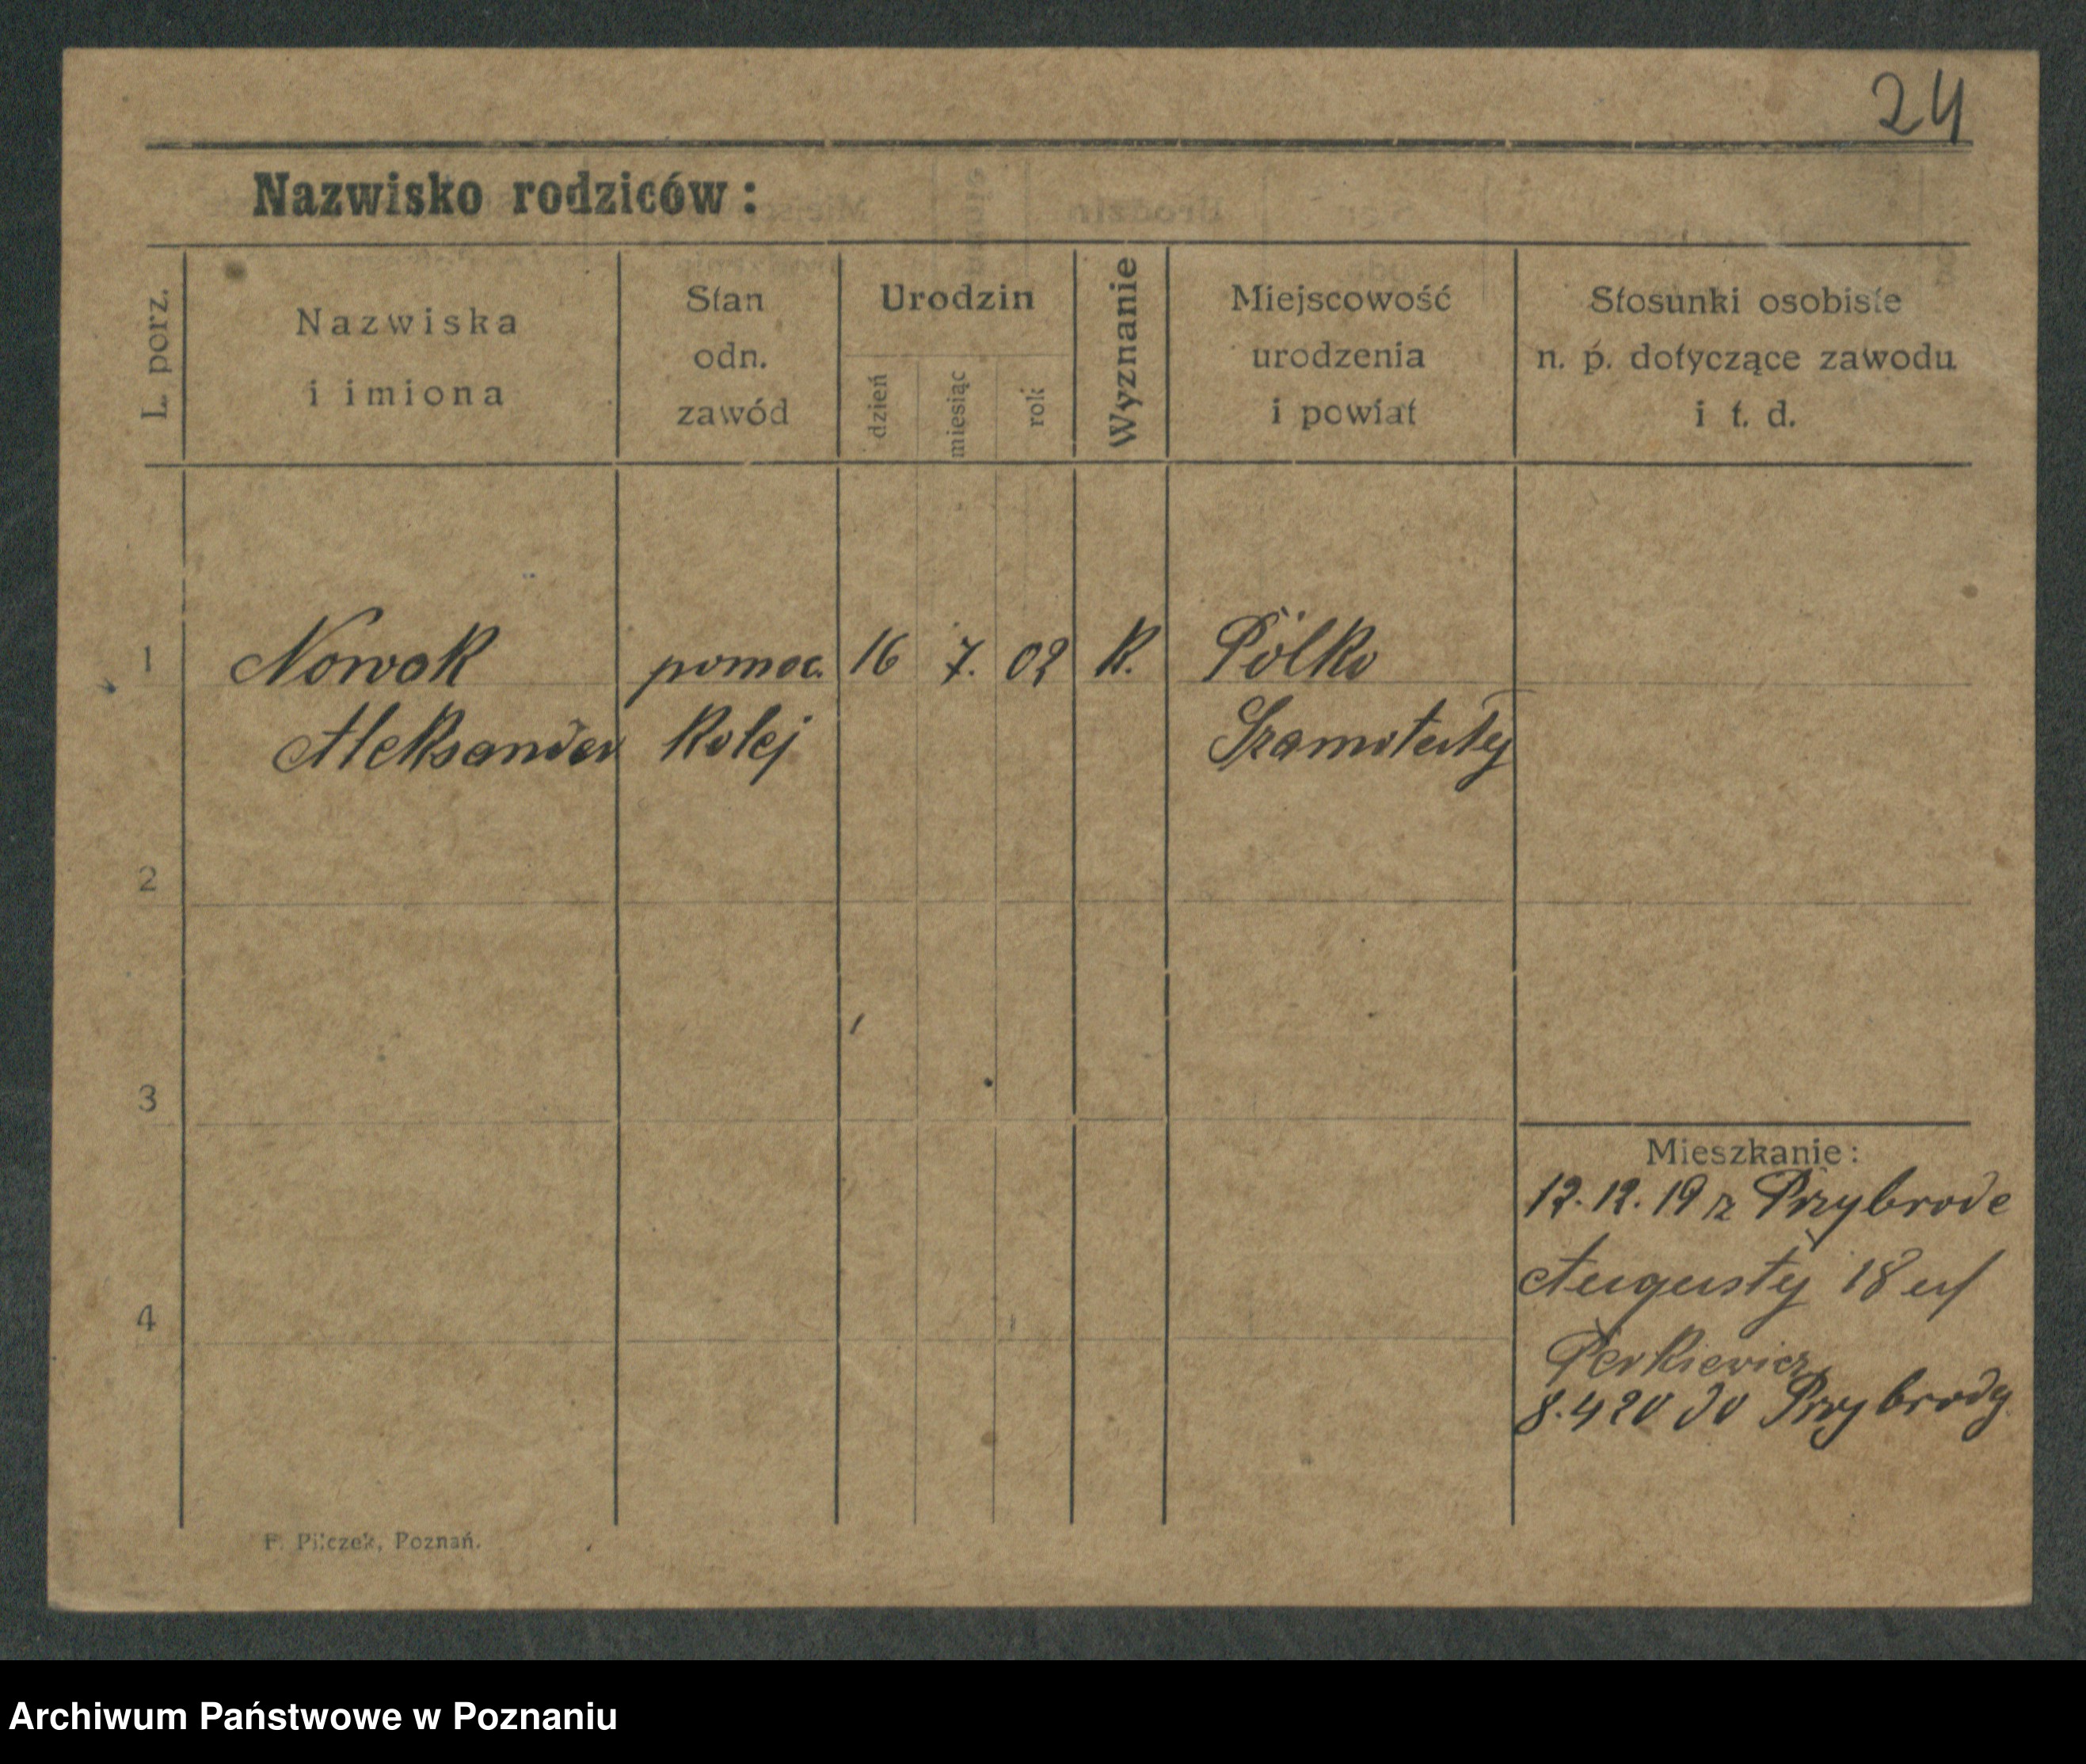 24
Nazwisko rodziców:
L. porz.
Nazwiska
i imiona
Stan
odn.
zawód
Urodzin
dzień
miesiąc
rok
Wyznanie
Miejscowość
urodzenia
i powiat
Stosunki osobiste
n. p. dotyczące zawodu
i t. d.
1 Nowak pomoc. 16 7. 02 K. Pólko
Aleksander Kolej Szamotuły
2
3
4
Mieszkanie:
12.12.19 z Przybrode
Augusty 18 u/
Perkiewicz
8.4 20 do Przybrody
F. Pilczek, Poznań.
Archiwum Państwowe w Poznaniu